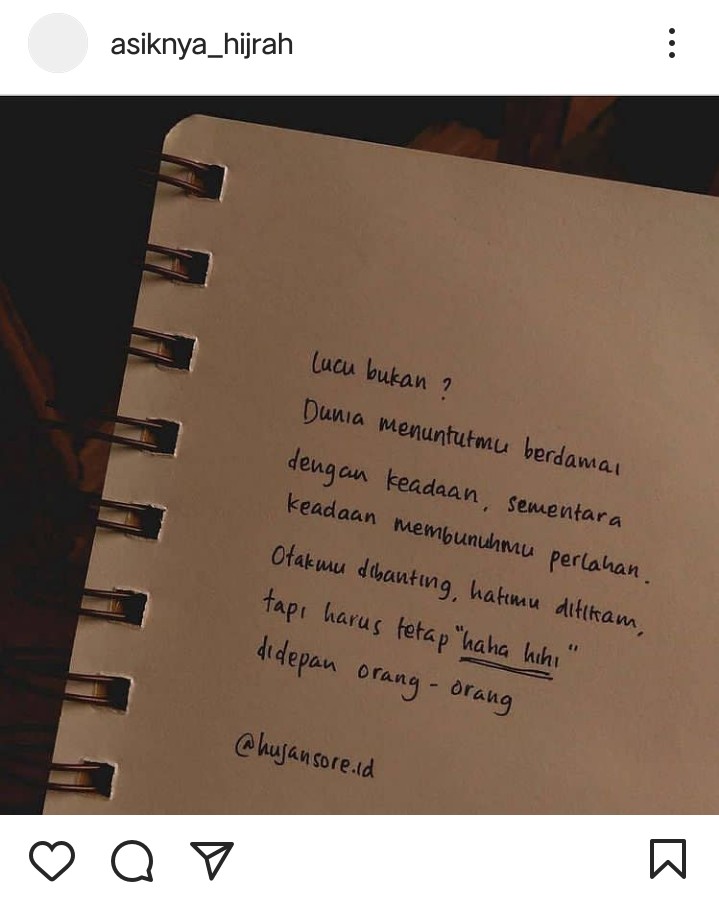 asiknya_hijrah
Lucu bukan ?
Dunia menuntutmu berdamai
dengan keadaan, sementara
keadaan membunuhmu perlahan.
Otakmu dibanting, hatimu ditikam,
tapi harus tetap "haha hihi"
didepan orang - orang
@hujansore.id